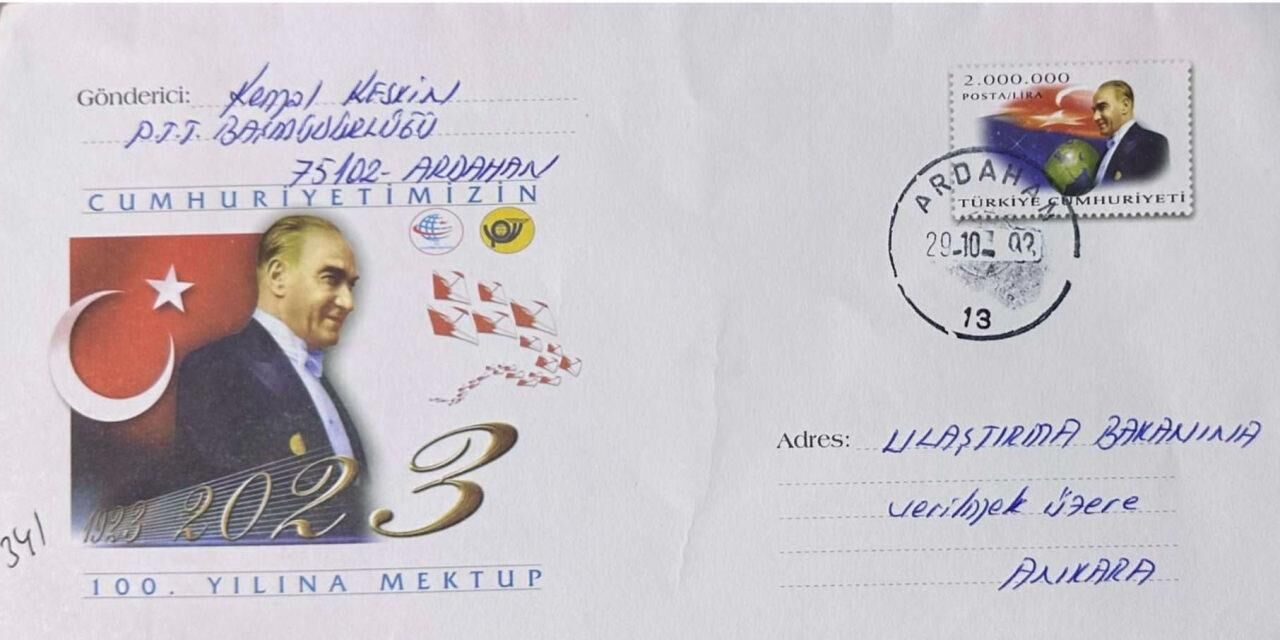 Gönderici: Kemal KESKİN
P.T.T. BAŞMÜDÜRLÜĞÜ
75102- ARDAHAN
CUMHURİYETİMİZİN
1923 2023
100. YILINA MEKTUP
341
2.000.000
POSTA/LİRA
TÜRKİYE CUMHURİYETİ
ARDAHAN
29-10- 02
13
Adres: ULAŞTIRMA BAKANINA
verilmek üzere
ANKARA